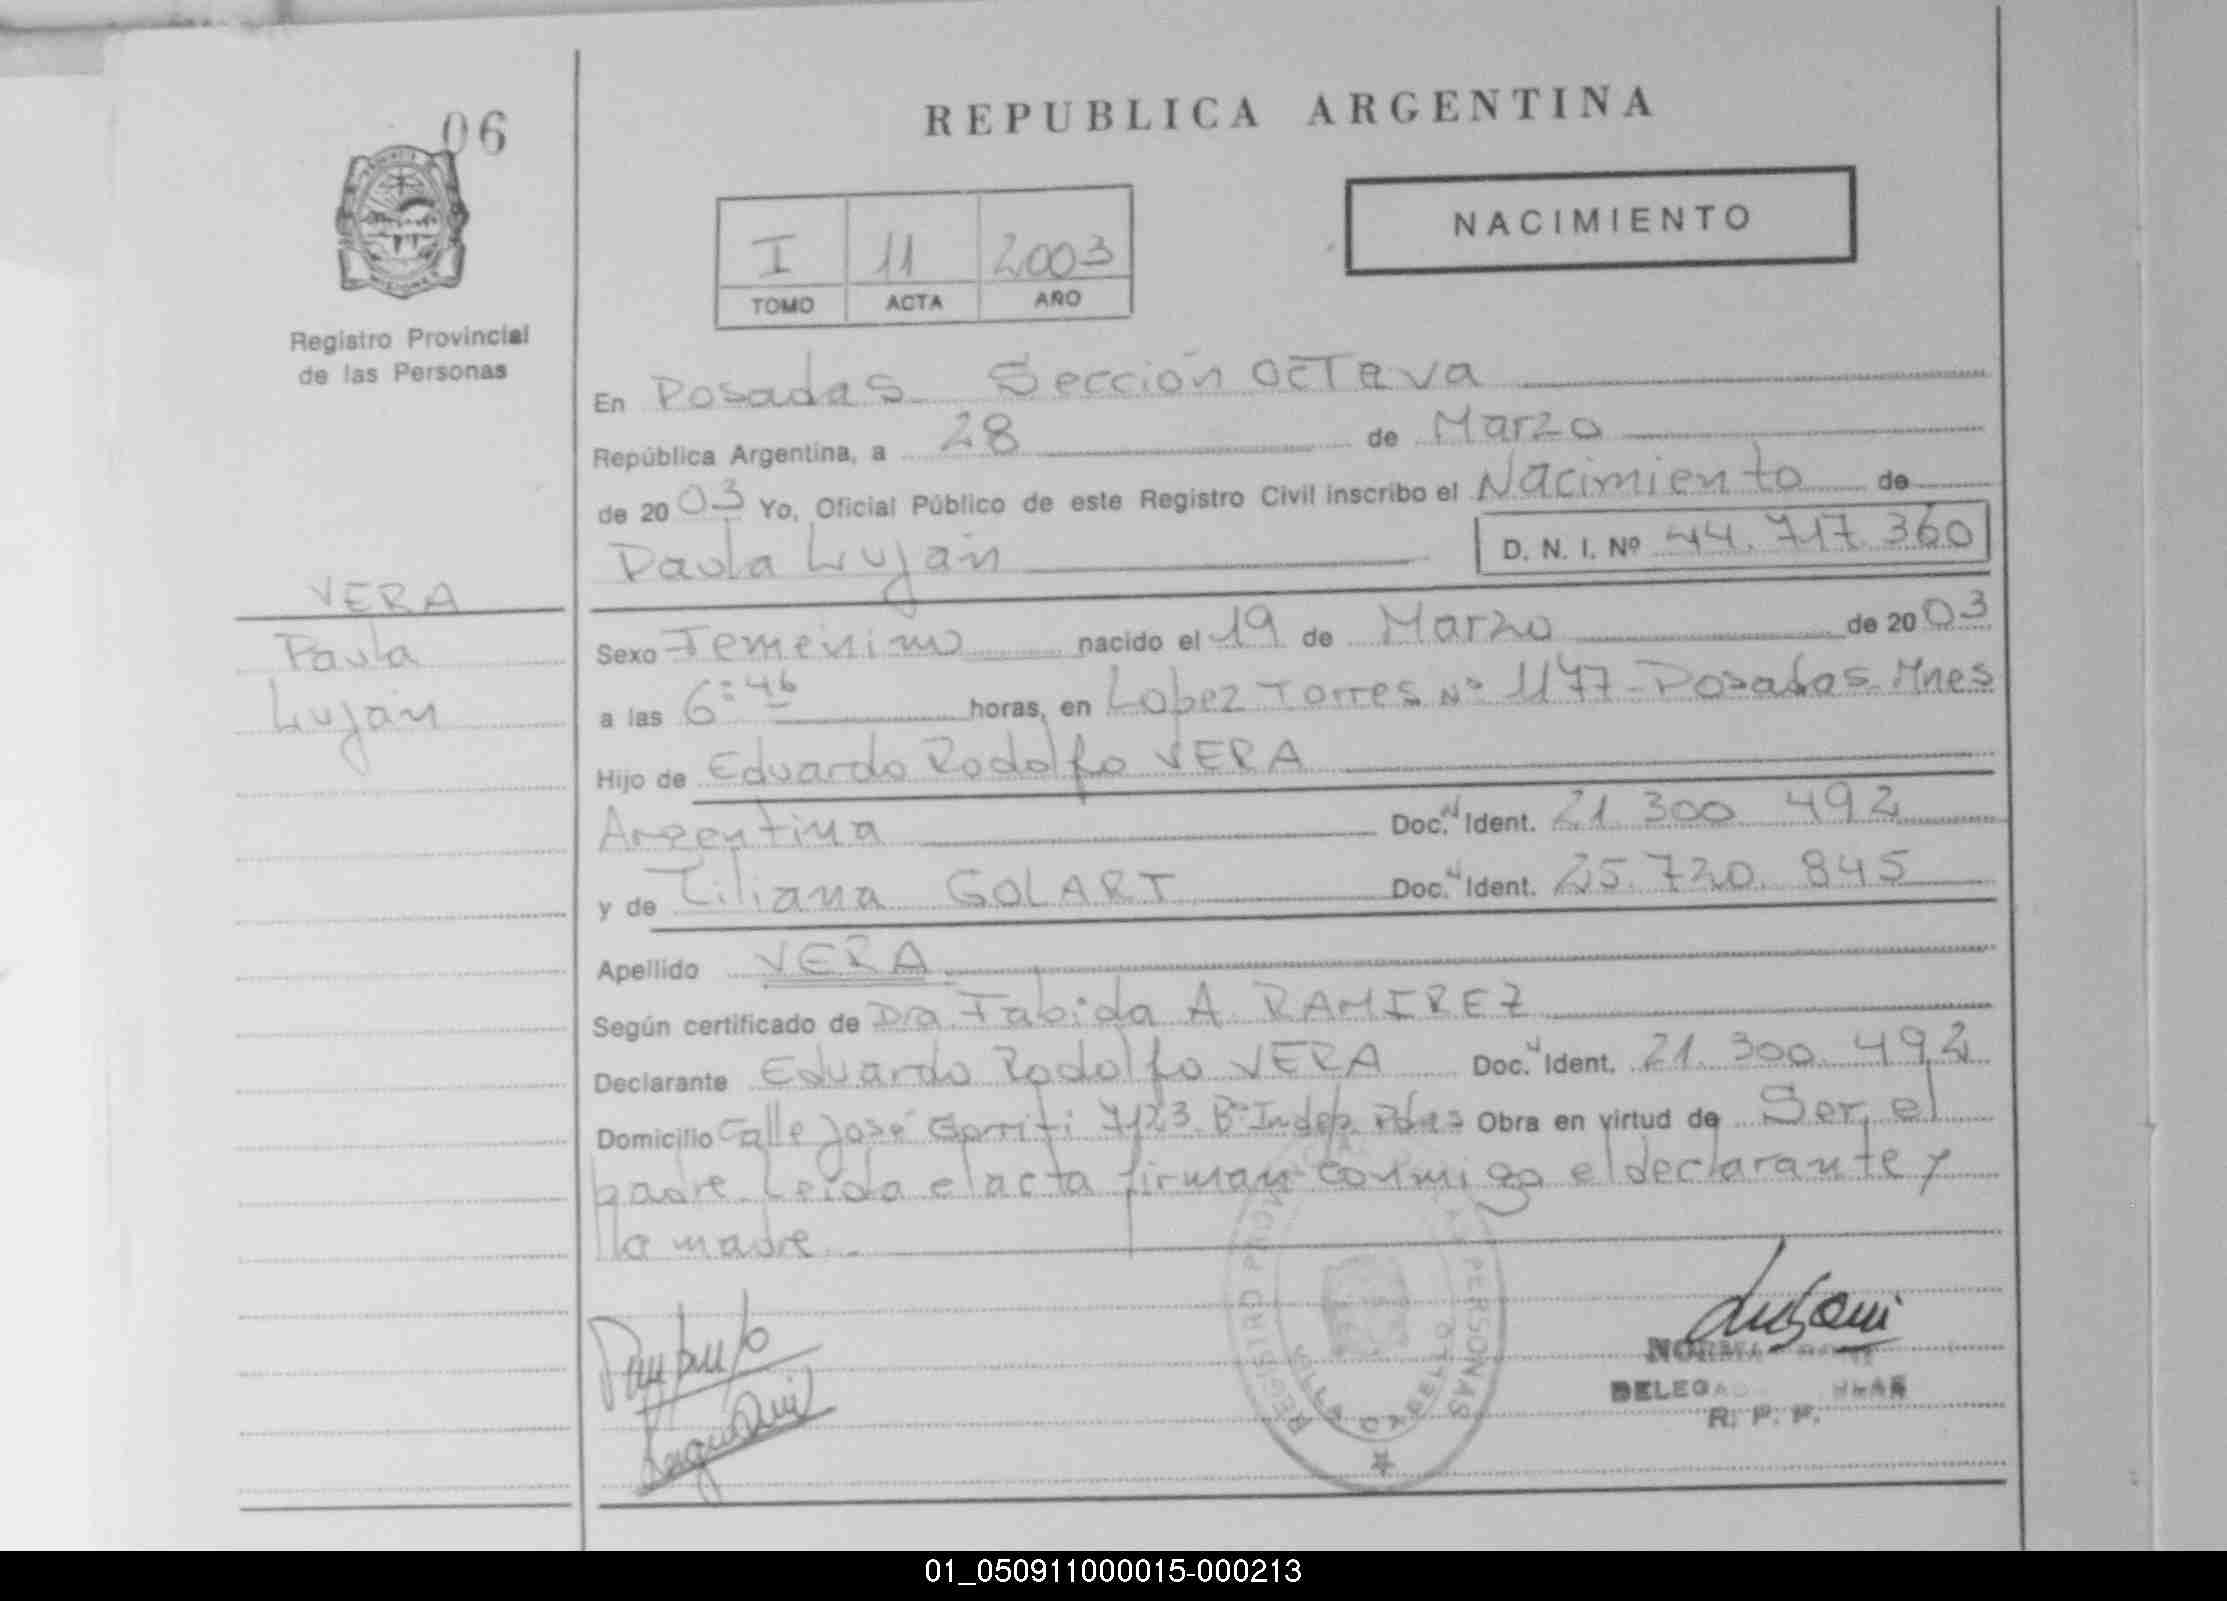 06
REPUBLICA ARGENTINA
NACIMIENTO
I 11 2003
TOMO ACTA AÑO
Registro Provincial
de las Personas
En Posadas Sección Octava
República Argentina, a 28 de Marzo
de 2003 Yo, Oficial Público de este Registro Civil inscribo el Nacimiento de
Paula Luján D. N. I. Nº 44.717.360
VERA
Paula
Luján
Sexo Femenino nacido el 19 de Marzo de 2003
a las 6:46 horas, en Lopez Torres Nº 1177 - Posadas - Mnes
Hijo de Eduardo Rodolfo VERA
Argentina Doc. N Ident. 21.300.492
y de Liliana GOLART Doc. N Ident. 25.720.845
Apellido VERA
Según certificado de Dra Fabida A. RAMIREZ
Declarante Eduardo Rodolfo VERA Doc. N Ident. 21.300.492
Domicilio Calle José Gorriti 7123 Bº Indep. Pdas Obra en virtud de Ser el
padre. Leída el acta firman conmigo el declarante y
la madre.
REGISTRO PERSONAS
NORMA
DELEGA
R. P. P.
01_050911000015-000213